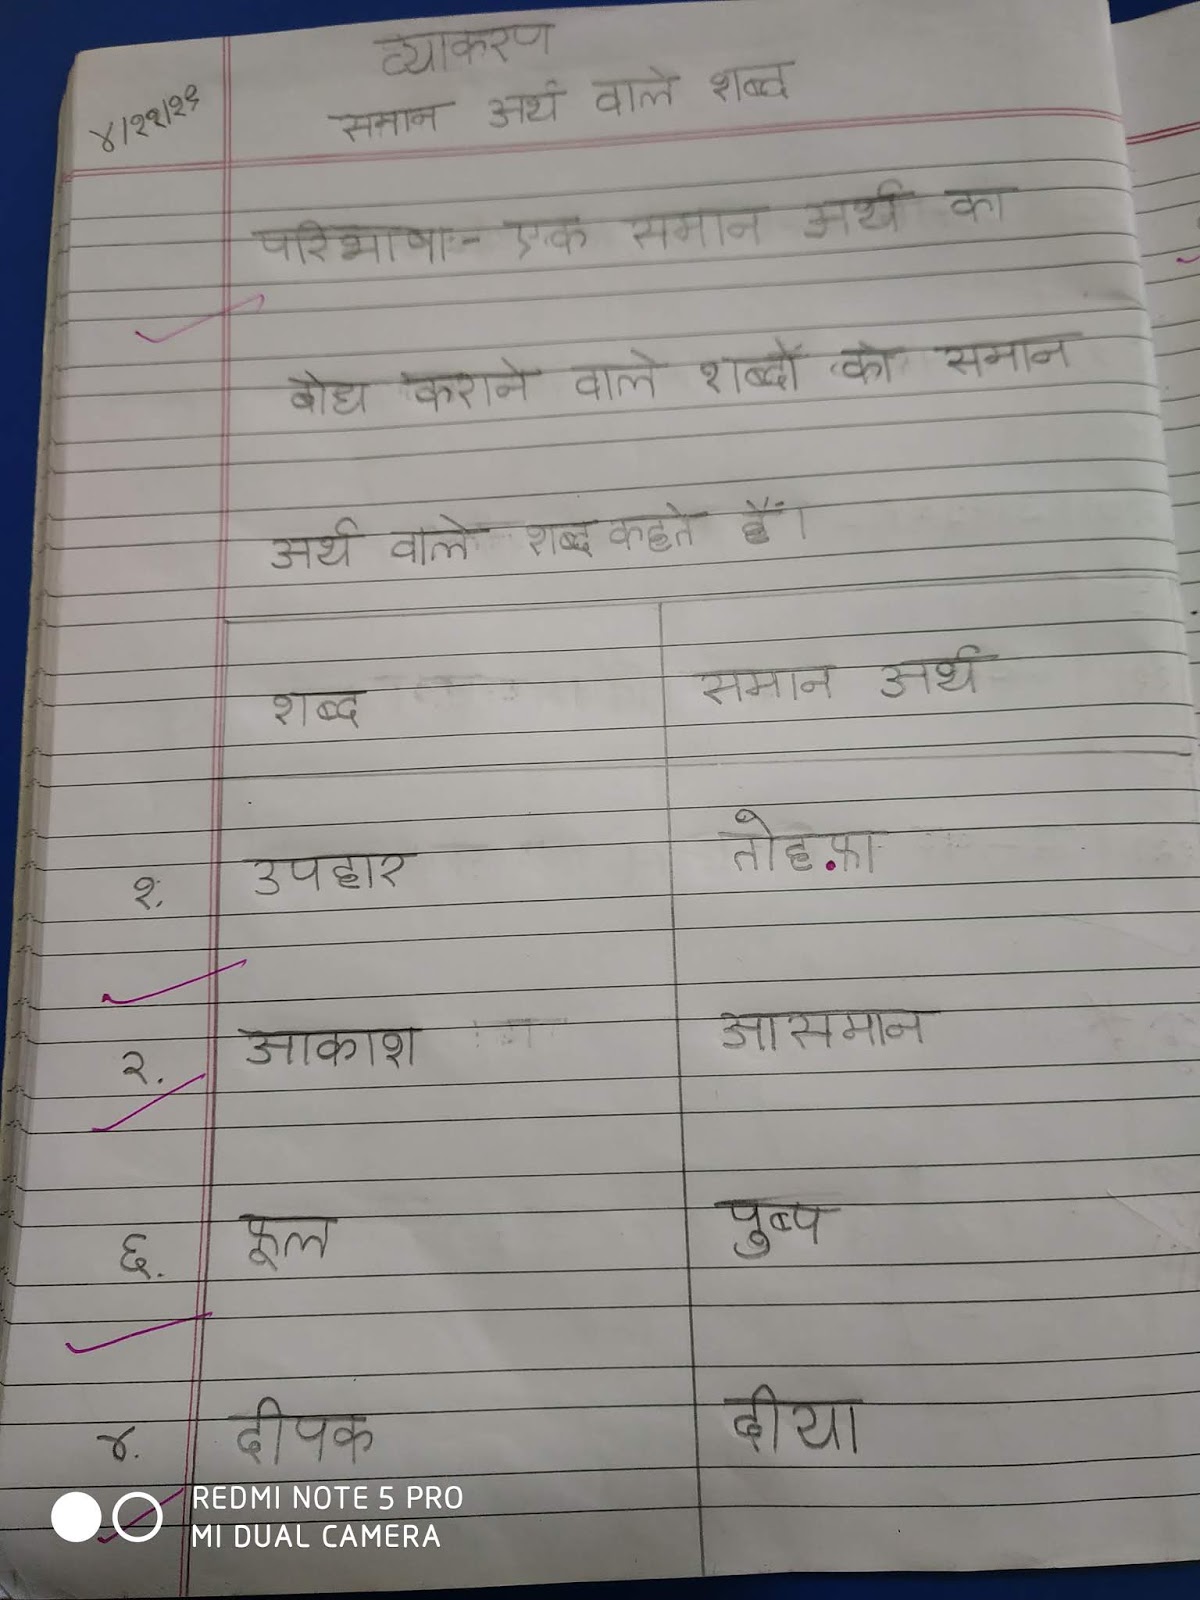 व्याकरण
४/११/१९ समान अर्थ वाले शब्द
परिभाषा:- एक समान अर्थ का
बोध कराने वाले शब्दों को समान
अर्थ वाले शब्द कहते हैं।
शब्द समान अर्थ
१. उपहार तोहफ़ा
२. आकाश आसमान
६. फूल पुष्प
४. दीपक दीया
REDMI NOTE 5 PRO
MI DUAL CAMERA